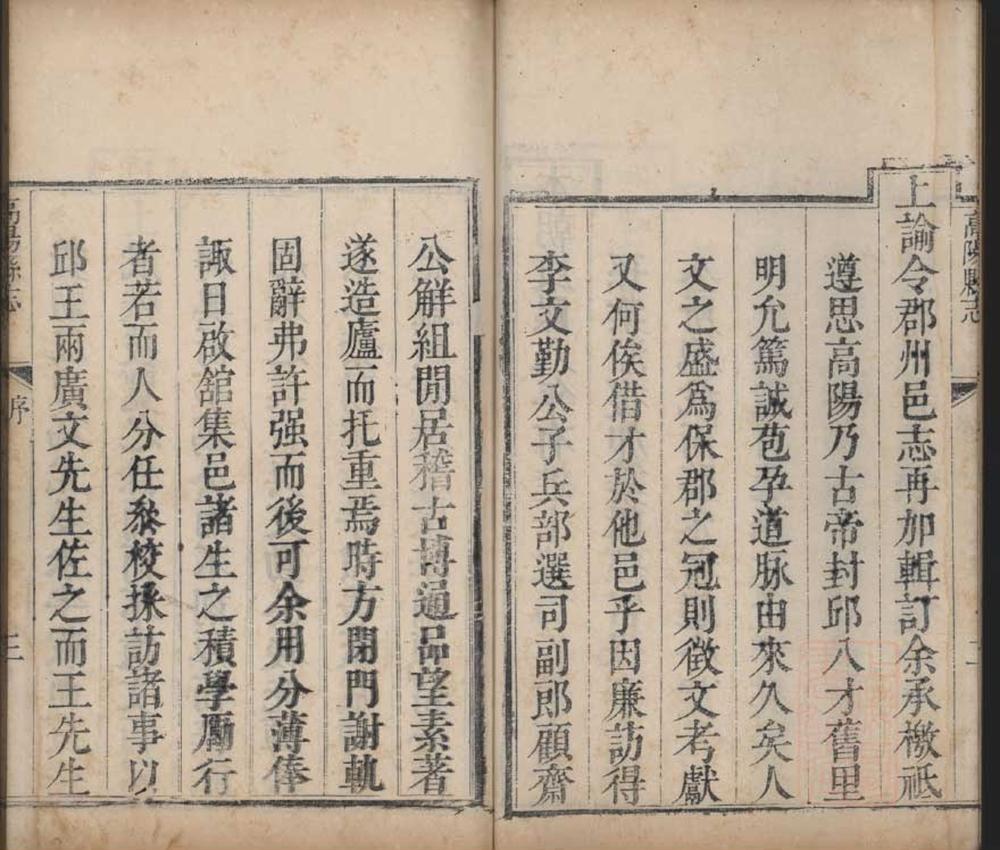 高陽縣志
二
上諭令郡州邑志再加輯訂余承檄祗
遵思高陽乃古帝封邱八才舊里
明允篤誠苞孕道脉由來久矣人
文之盛爲保郡之冠則徴文考獻
又何俟借才於他邑乎因廉訪得
李文勤公子兵部選司副郎顧齋
公解組閒居稽古博通品望素著
遂造廬而托重焉時方閉門謝軌
固辭弗許强而後可余用分薄俸
諏日啟舘集邑諸生之積學勵行
者若而人分任叅校採訪諸事以
邱王兩廣文先生佐之而王先生
高陽縣志
序
二